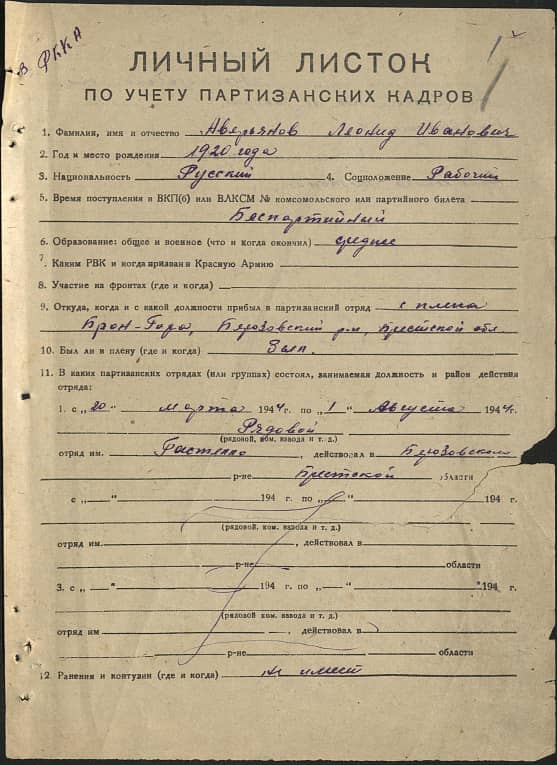 в РККА
ЛИЧНЫЙ ЛИСТОК
ПО УЧЕТУ ПАРТИЗАНСКИХ КАДРОВ
1. Фамилия, имя и отчество Аверьянов Леонид Иванович
2. Год и место рождения 1920 года
3. Национальность Русский 4. Соцположение Рабочий
5. Время поступления в ВКП(б) или ВЛКСМ № комсомольского или партийного билета
Беспартийный
6. Образование: общее и военное (что и когда окончил) среднее
7. Каким РВК и когда призван в Красную Армию
8. Участие на фронтах (где и когда)
9. Откуда, когда и с какой должности прибыл в партизанский отряд с плена
Брон-Гора, Березовский р-н, Брестской обл
10. Был ли в плену (где и когда)
11. В каких партизанских отрядах (или группах) состоял, занимаемая должность и район действия
отряда:
1. с „20“ марта 1944 г. по „1“ Августа 1944 г.
Рядовой
(рядовой, ком. взвода и т. д.)
отряд им. Гастелло, действовал в Березовском
р-не Брестской области
с „ “ 194 г. по „ “ 194 г.
(рядовой, ком. взвода и т. д.)
отряд им. , действовал в
р-не области
3. с „ “ 194 г. по „ “ 194 г.
(рядовой, ком. взвода и т. д.)
отряд им , действовал в
р-не области
12. Ранения и контузии (где и когда) не имеет